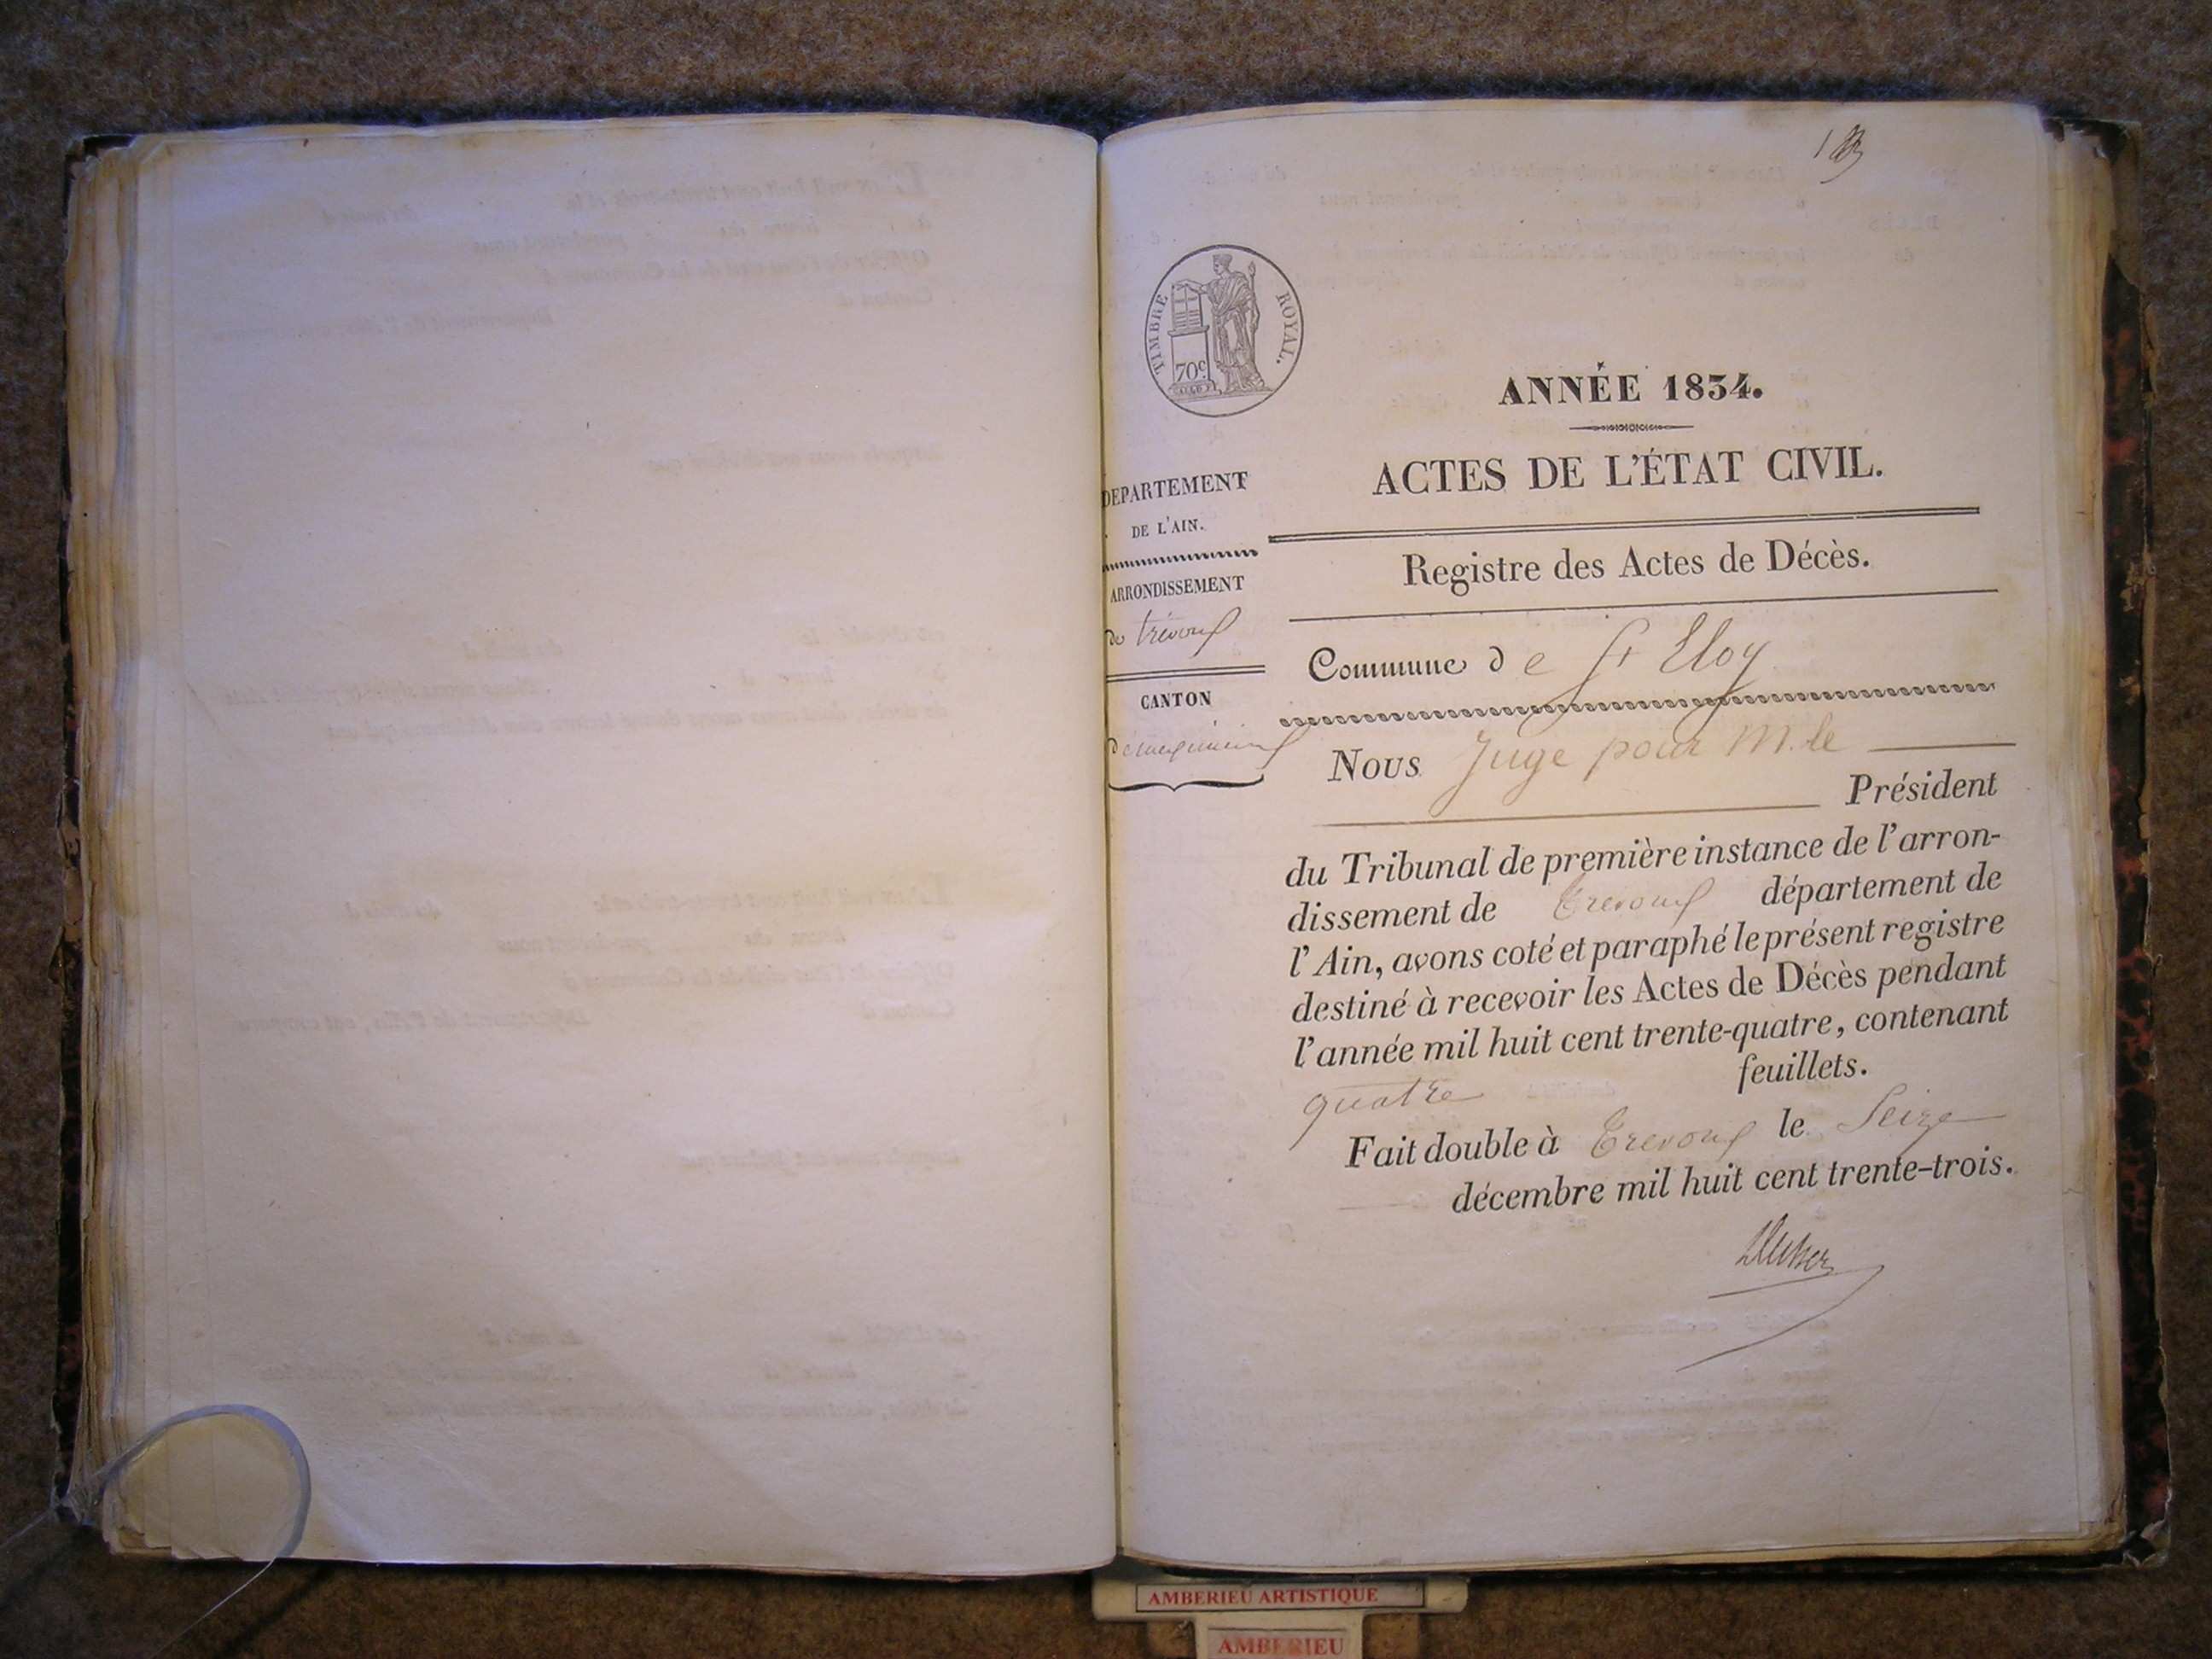 TIMBRE ROYAL.
70c.
ANNÉE 1834.
ACTES DE L'ÉTAT CIVIL.
DEPARTEMENT
DE L'AIN.
ARRONDISSEMENT
de trévoux
CANTON
Registre des Actes de Décès.
Commune de St Eloy
Nous Juge pour M. le
Président
du Tribunal de première instance de l'arron-
dissement de Trevoux département de
l'Ain, avons coté et paraphé le présent registre
destiné à recevoir les Actes de Décès pendant
l'année mil huit cent trente-quatre, contenant
quatre feuillets.
Fait double à Trevoux le Seize
décembre mil huit cent trente-trois.
AMBERIEU ARTISTIQUE
AMBERIEU